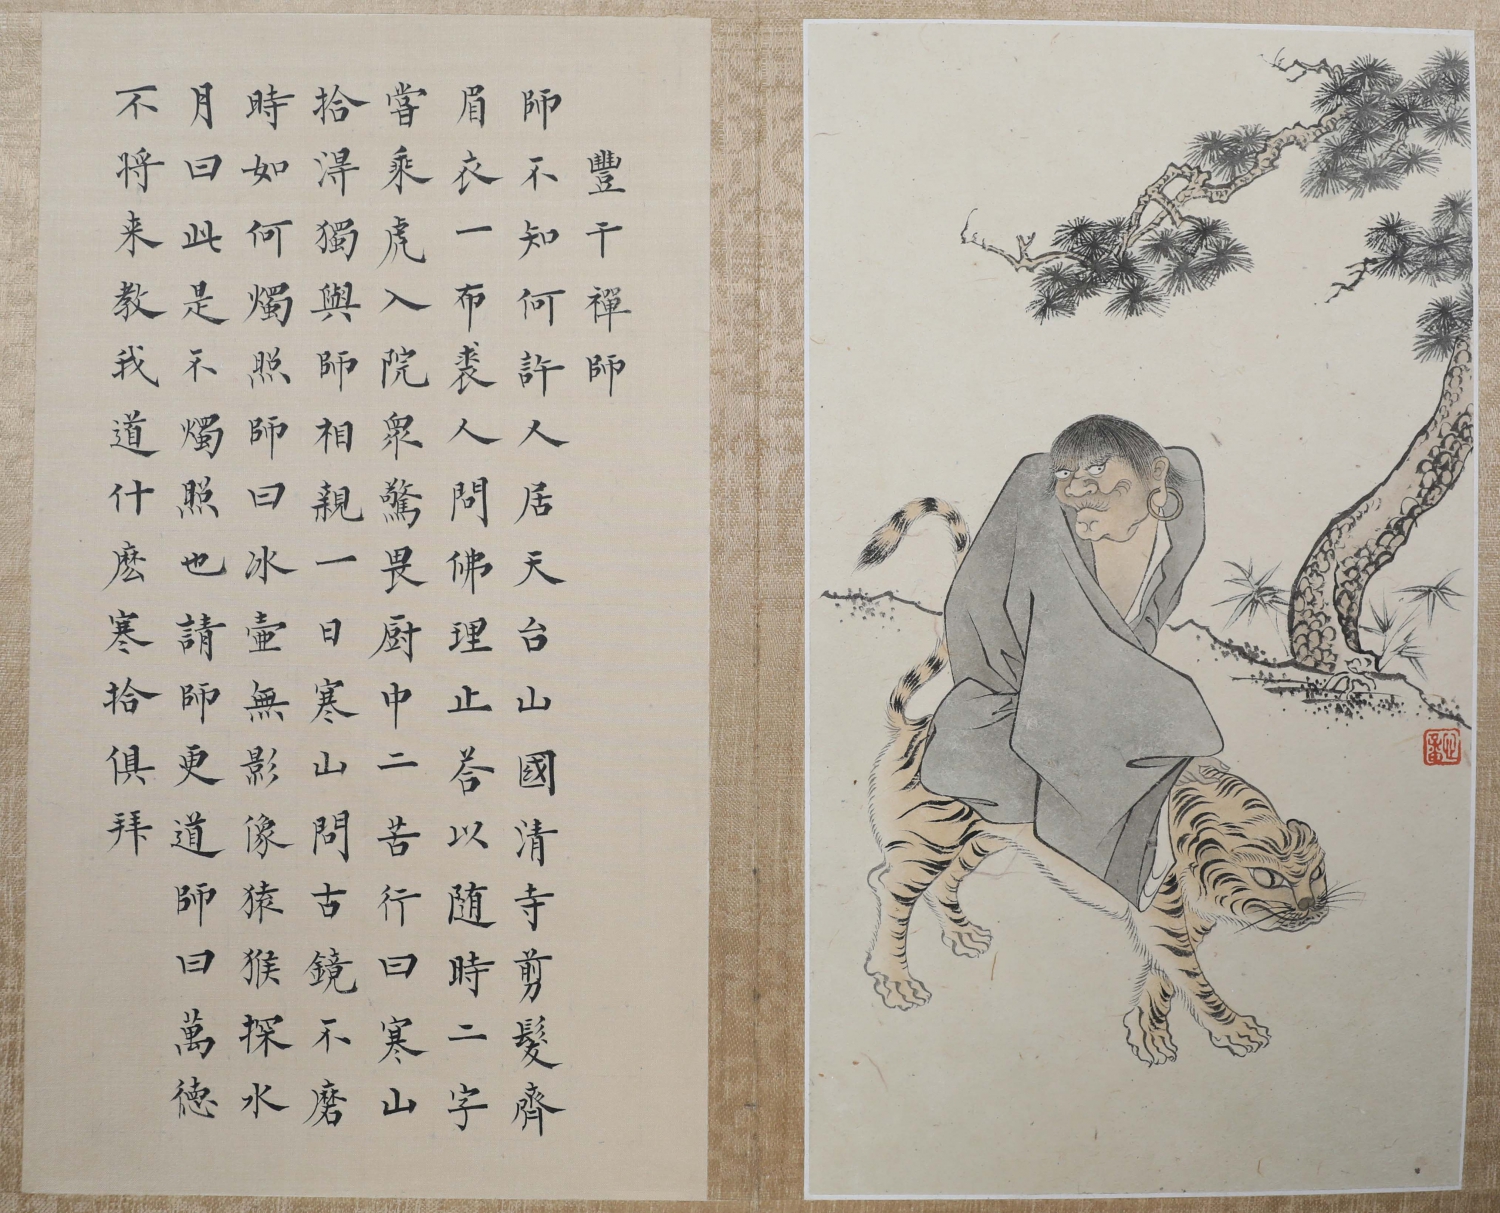 豐干禪師
師不知何許人居天台山國清寺剪髮齊
眉衣一布裘人問佛理止荅以随時二字
嘗乘虎入院衆驚畏厨中二苦行曰寒山
拾得獨與師相親一日寒山問古鏡不磨
時如何燭照師曰冰壷無影像猿猴探水
月曰此是不燭照也請師更道師曰萬德
不将来教我道什麽寒拾俱拜